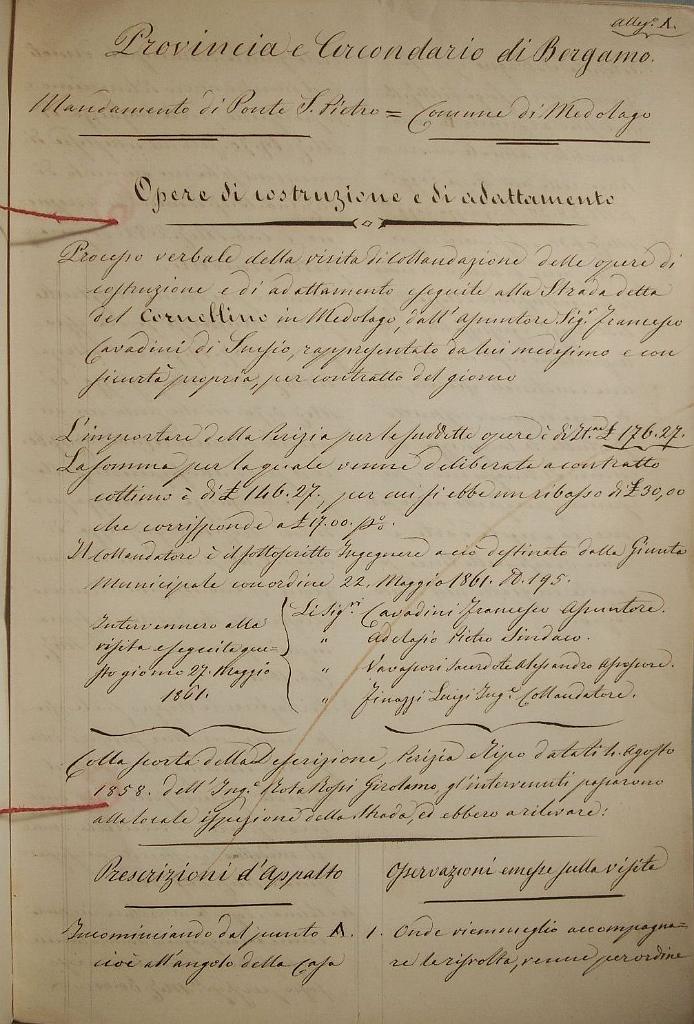 Alleg.º A.
Provincia e Circondario di Bergamo.
Mandamento di Ponte S. Pietro = Comune di Medolago
Opere di costruzione e di adattamento
Processo verbale della visita di Collaudazione delle opere di
costruzione e di adattamento eseguite alla Strada detta
del Cornellino in Medolago, dall'Assuntore Sig.r Francesco
Cavadini di Suisio, rappresentato da lui medesimo e con
sicurtà propria, per contratto del giorno
L'importare della Perizia per le suddette opere è di It.ne £ 176.27.
La somma per la quale venne deliberata a contratto
cottimo è di £ 146.27, per cui si ebbe un ribasso di £ 30,00
che corrisponde a £ 17.00. p%.
Il Collaudatore è il sottoscritto Ingegnere a ciò destinato dalla Giunta
Municipale con ordine 22. Maggio 1861. N. 195.
Intervennero alla
visita eseguita que-
sto giorno 27. Maggio
1861.
Li Sig.ri Cavadini Francesco Assuntore.
" Adelasio Pietro Sindaco.
" Vavassori Sacerdote Alessandro Assessore.
" Finazzi Luigi Ing.e Collaudatore.
Colla scorta della Descrizione, Perizia e Tipo datati 4. Agosto
1858. dell'Ing.e Rota Rossi Girolamo, gl'intervenuti passarono
alla locale ispezione della Strada, ed ebbero a rilevare:
Prescrizioni d'Appalto
Incominciando dal punto A.
cioè all'angolo della Casa
Osservazioni emesse sulla visita
1. Onde viemmeglio accompagna=
re la risvolta, venne per ordine